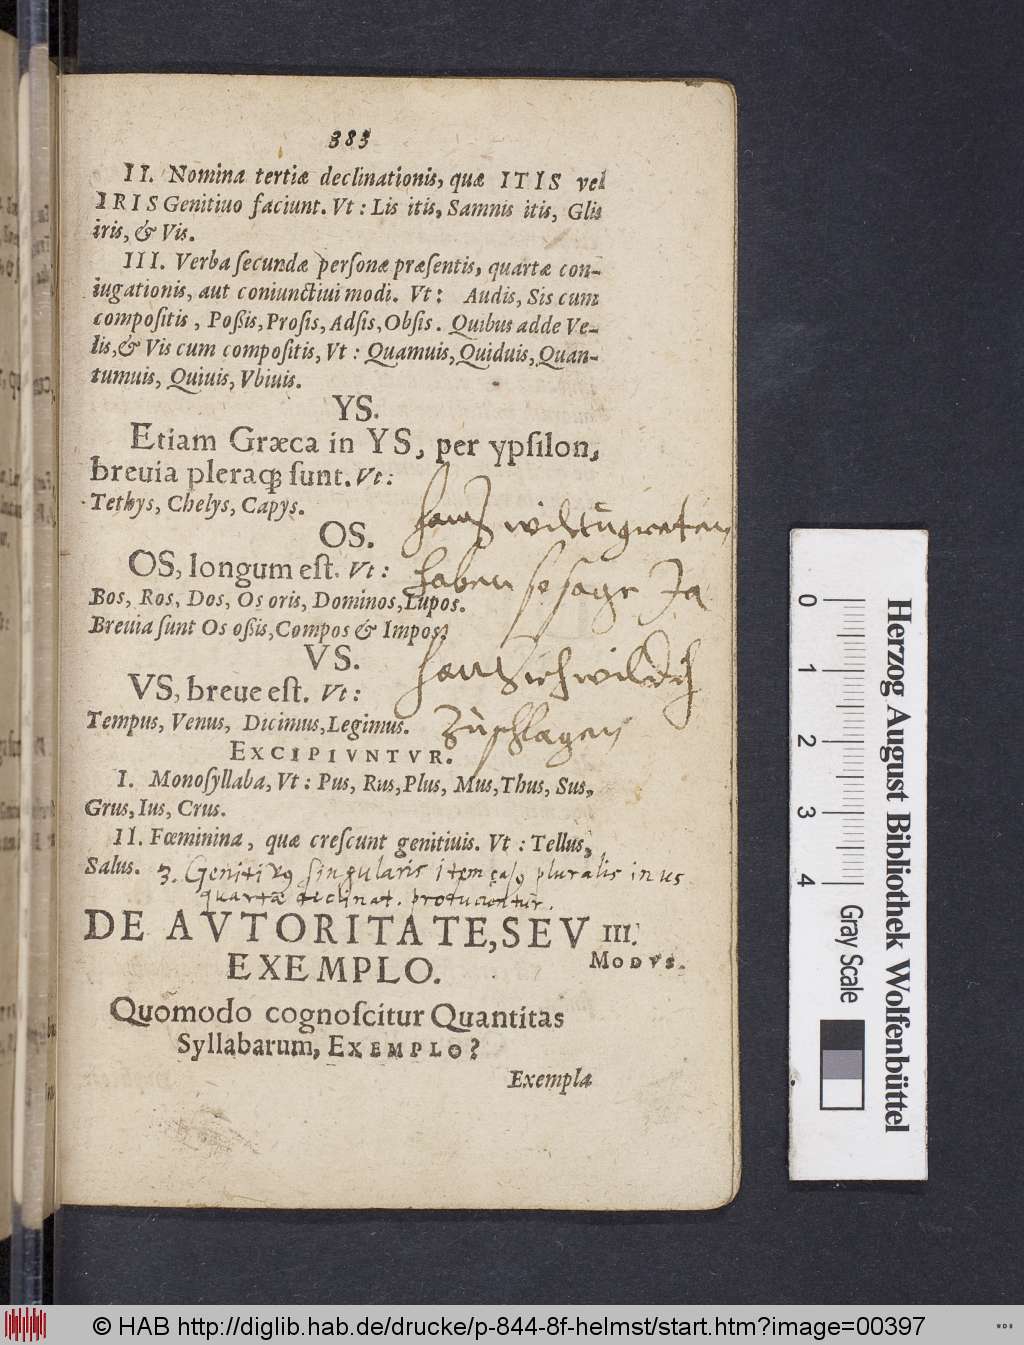 383
II. Nomina tertiæ declinationis, quæ ITIS vel
IRIS Genitiuo faciunt. Vt : Lis itis, Samnis itis, Glis
iris, & Vis.
III. Verba ſecundæ perſonæ præſentis, quartæ con-
iugationis, aut coniunctiui modi. Vt : Audis, Sis cum
compoſitis, Poßis, Proſis, Adſis, Obſis. Quibus adde Ve-
lis, & Vis cum compoſitis, Vt : Quamuis, Quiduis, Quan-
tumuis, Quiuis, Vbiuis.
YS.
Etiam Græca in YS, per ypſilon,
breuia pleraqꝫ ſunt. Vt :
Tethys, Chelys, Capys.
OS.
OS, longum eſt. Vt :
Bos, Ros, Dos, Os oris, Dominos, Lupos.
Breuia ſunt Os oßis, Compos & Impos.
hans wiltu greten
haben so sage Ja
hans ich wil dich
zu schlagen
VS.
VS, breue eſt. Vt :
Tempus, Venus, Dicimus, Legimus.
EXCIPIVNTVR.
I. Monoſyllaba, Vt : Pus, Rus, Plus, Mus, Thus, Sus,
Grus, Ius, Crus.
II. Fœminina, quæ creſcunt genitiuis. Vt : Tellus,
Salus. 3. Genitivus singularis item pluralis in us
quartæ declinat. producuntur.
DE AVTORITATE, SEV III.
EXEMPLO. MODVS.
Quomodo cognoſcitur Quantitas
Syllabarum, EXEMPLO?
Exempla
0 1 2 3 4
Herzog August Bibliothek Wolfenbüttel
Gray Scale
© HAB http://diglib.hab.de/drucke/p-844-8f-helmst/start.htm?image=00397
WDB